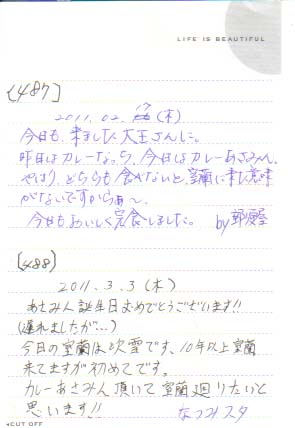 LIFE IS BEAUTIFUL
[487]
2011.02.17(木)
今日も、来ました大王さんに。
昨日はカレーなっう、今日はカレーあさみん、
やはり、どちらも食べないと、室蘭に来た意味
がないですからぁ〜、
今日も、おいしく完食しました。 by
[488]
2011.3.3(木)
あさみん誕生日おめでとうございます!!
(遅れましたが…)
今日の室蘭は吹雪です。10年以上室蘭
来てますが初めてです。
カレーあさみん頂いて室蘭廻りたいと
思います!! なつみスタ
CUT OFF